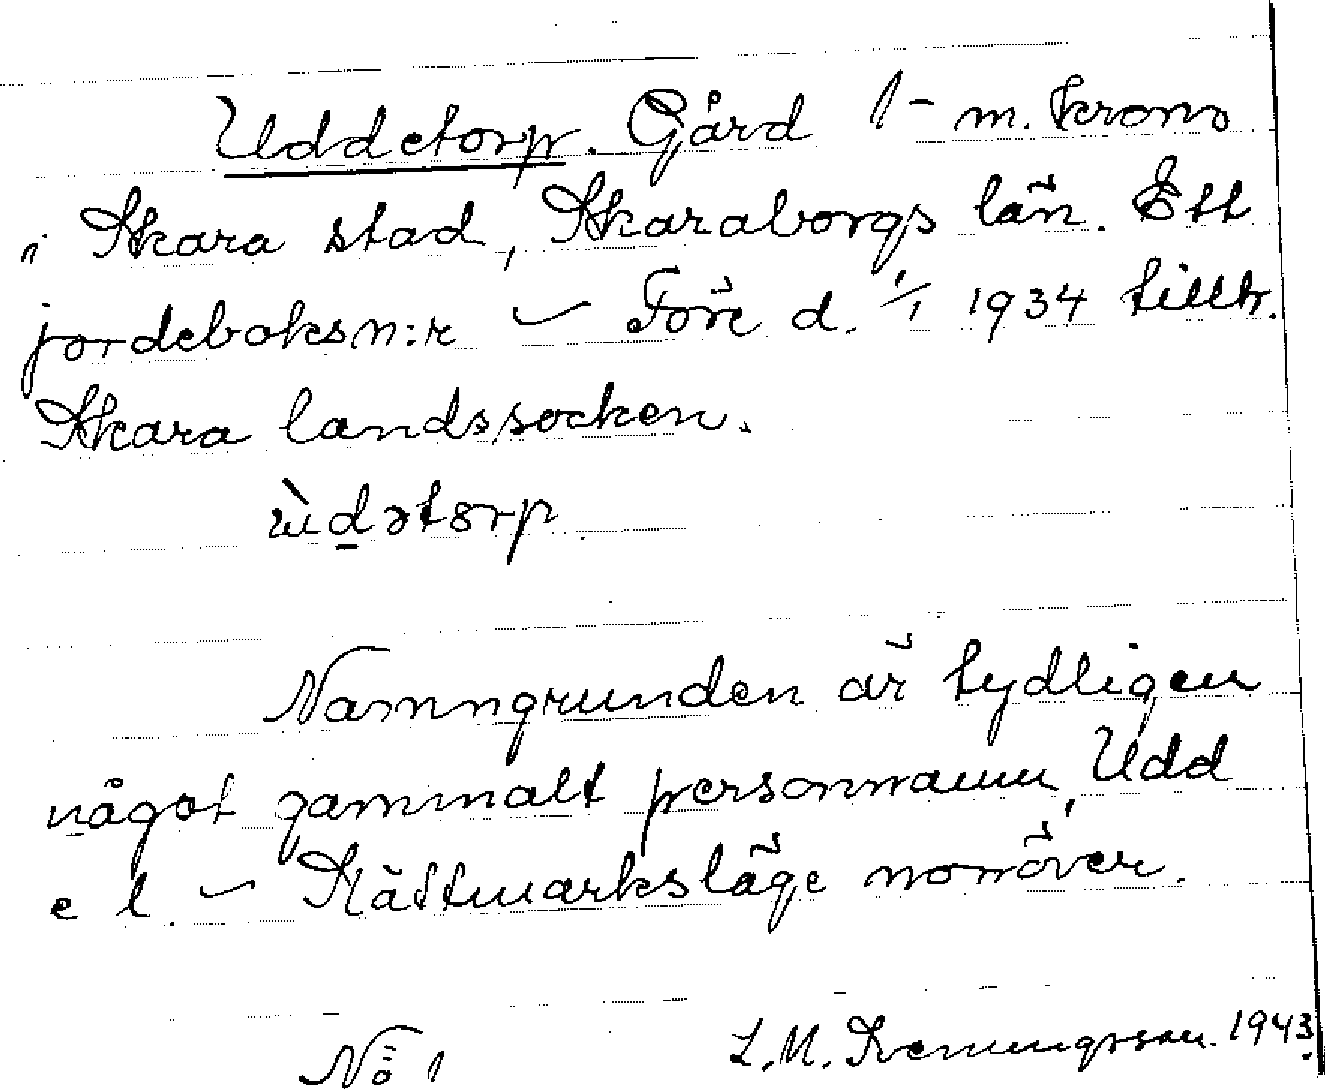 Uddetorp. Gård 1 – m. krono
i Skara stad, Skaraborgs län. Ett
jordeboksn:r – Före d. 1/1 1934 tillh.
Skara landssocken.
Namngrunden är tydligen
något gammalt personnamn, Udd
e l. – Slättmarksläge norröver.
No 1 L. M. 1943.